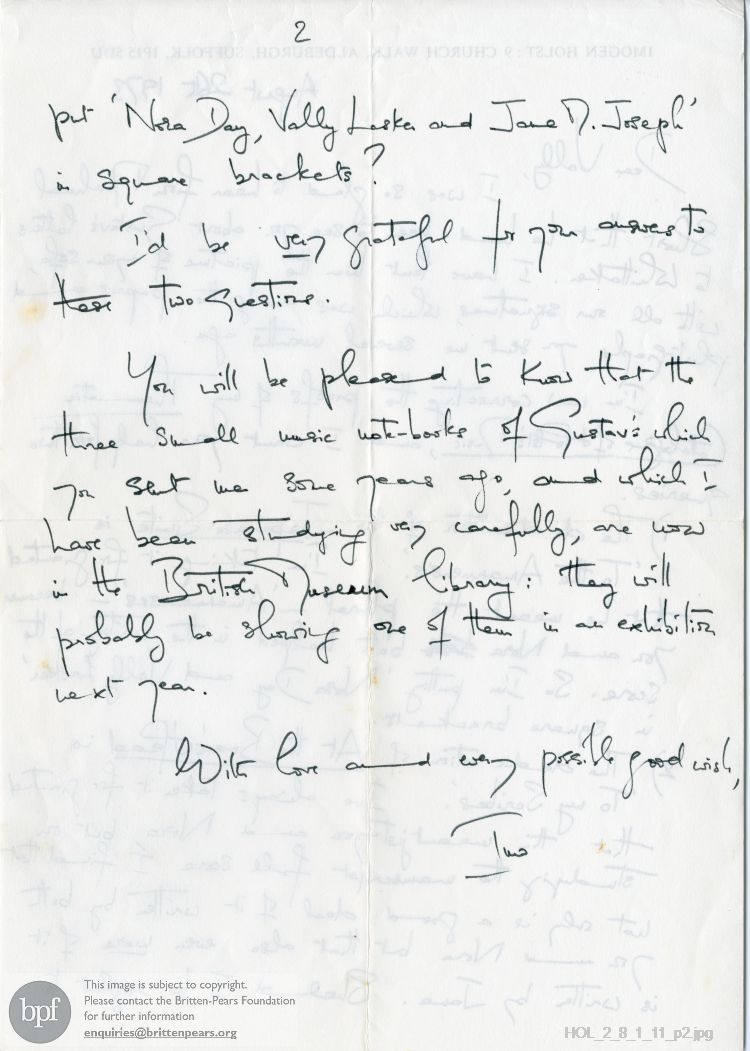 2
put 'Nora Day, Vally Lasker and Jane M. Joseph'
in square brackets?
I'd be very grateful for your answers to
these two questions.
You will be pleased to know that the
three small music note-books of Gustav's which
you sent me some years ago, and which I
have been studying very carefully, are now
in the British Museum library: they will
probably be showing one of them in an exhibition
next year.
With love and every possible good wish,
Imo
bpf
This image is subject to copyright.
Please contact the Britten-Pears Foundation
for further information
enquiries@brittenpears.org
HOL_2_8_1_11_p2.jpg